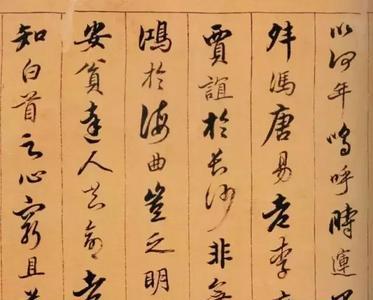 以何年嗚呼時運
舛馮唐易老李
賈誼於長沙非
鴻於海曲豈乏明
安貧達人知命老
知白首之心窮且